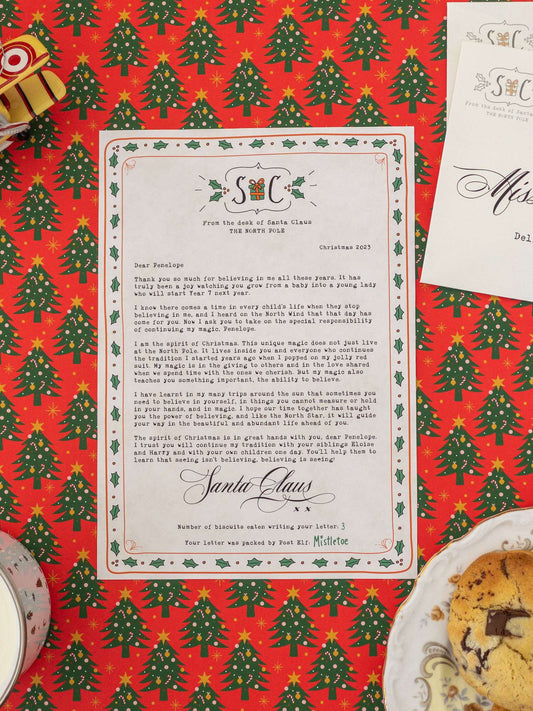 S C
From the desk of Santa Claus
THE NORTH POLE
Christmas 2023
Dear Penelope
Thank you so much for believing in me all these years. It has
truly been a joy watching you grow from a baby into a young lady
who will start Year 7 next year.
I know there comes a time in every child's life when they stop
believing in me, and I heard on the North Wind that that day has
come for you. Now I ask you to take on the special responsibility
of continuing my magic, Penelope.
I am the spirit of Christmas. This unique magic does not just live
at the North Pole. It lives inside you and everyone who continues
the tradition I started years ago when I popped on my jolly red
suit. My magic is in the giving to others and in the love shared
when we spend time with the ones we cherish. But my magic also
teaches you something important, the ability to believe.
I have learnt in my many trips around the sun that sometimes you
need to believe in yourself, in things you cannot measure or hold
in your hands, and in magic. I hope our time together has taught
you the power of believing, and like the North Star, it will guide
your way in the beautiful and abundant life ahead of you.
The spirit of Christmas is in great hands with you, dear Penelope.
I trust you will continue my tradition with your siblings Eloise
and Harry and with your own children one day. You'll help them to
learn that seeing isn't believing, believing is seeing!
Santa Claus
x x
Number of biscuits eaten writing your letter: 3
Your letter was packed by Post Elf: Mistletoe
S C
S C
From the desk of Santa
THE NORTH POLE
Miss
Del